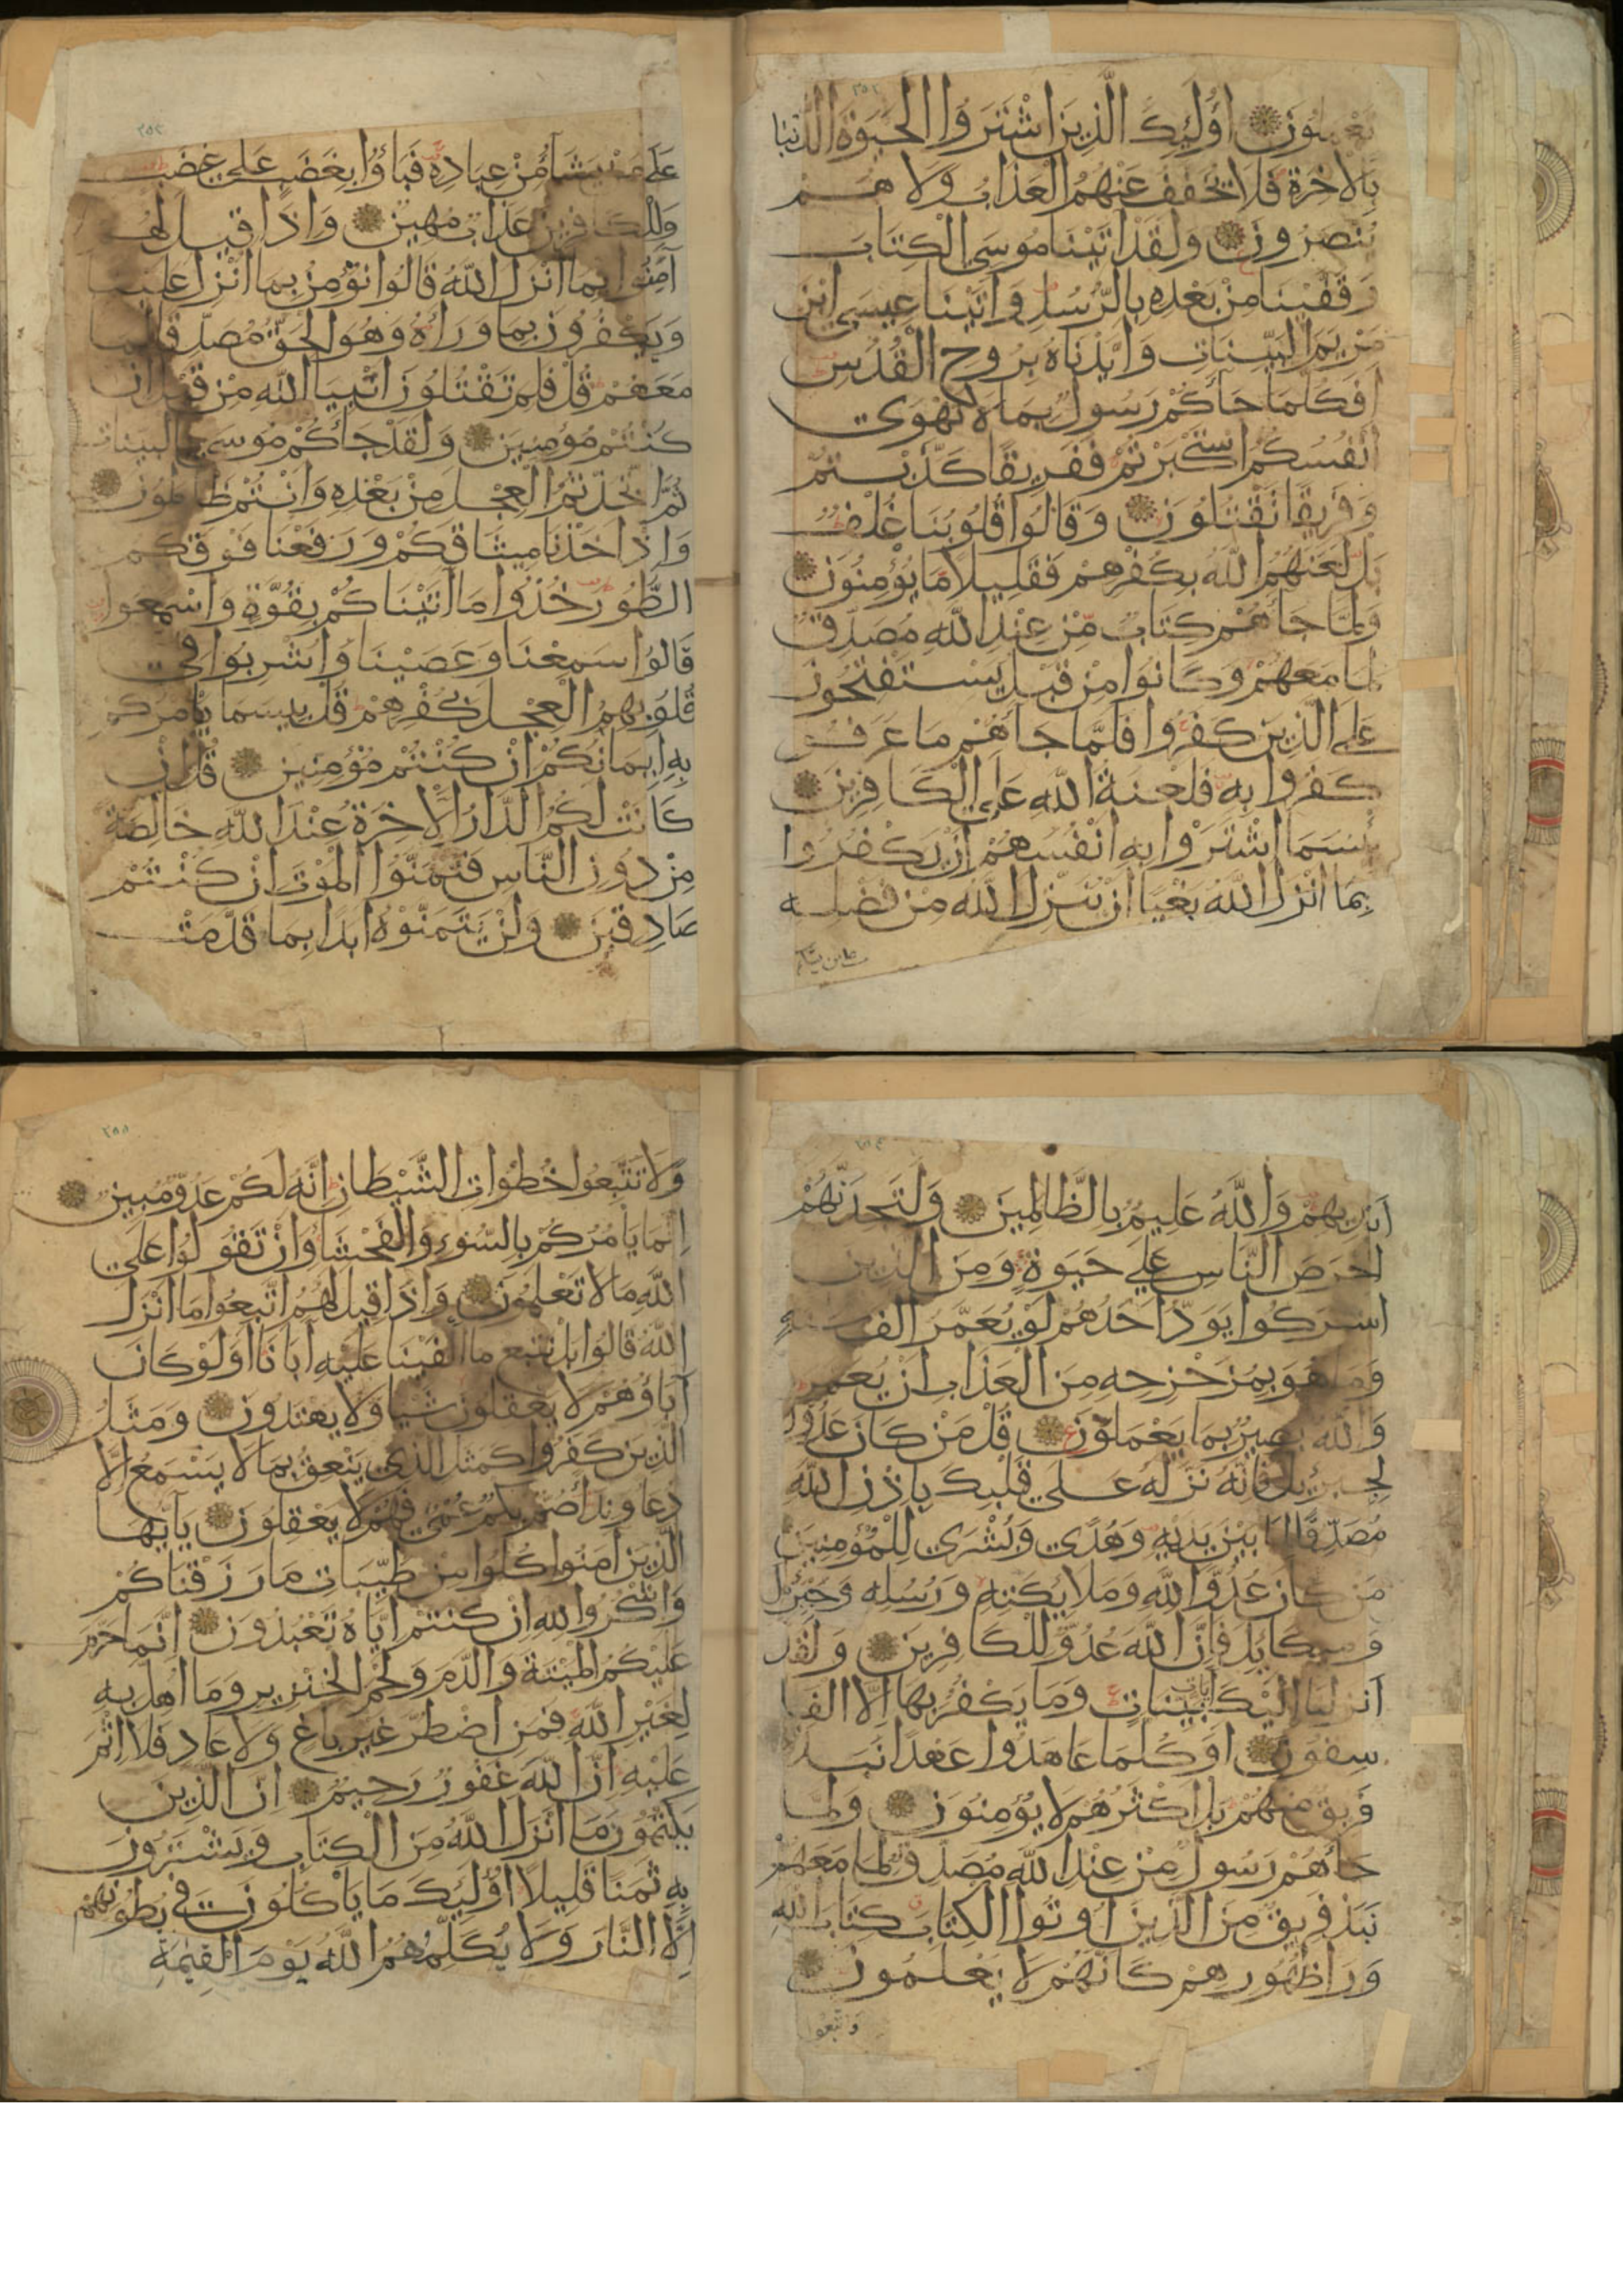 ٢٥٢
تعملون اُولَئِكَ الَّذِينَ اشْتَرَوُا الْحَيَوةَ الدُّنْيَا
بِالْاخِرَةِ فَلَا يُخَفَّفُ عَنْهُمُ الْعَذَابُ وَلَا هم
يُنْصَرُونَ وَلَقَدْ اتَيْنَا مُوسَى الْكِتَابَ
وَقَفَّيْنَا مِنْ بَعْدِهِ بِالرُّسُلِ وَاتَيْنَا عِيسَى ابْنَ
مَرْيَمَ الْبَيِّنَاتِ وَاَيَّدْنَاهُ بِرُوحِ الْقُدُسِ
اَفَكُلَّمَا جَاَكُمْ رَسُولٌ بِمَا لَا تَهْوَى
اَنْفُسُكُمُ اسْتَكْبَرْتُمْ فَفَرِيقًا كَذَّبْتُمْ
وَفَرِيقًا تَقْتُلُونَ وَقَالُوا قُلُوبُنَا غُلْفٌ
بَلْ لَعَنَهُمُ اللَّهُ بِكُفْرِهِمْ فَقَلِيلًا مَا يُؤْمِنُونَ
وَلَمَّا جَاَهُمْ كِتَابٌ مِنْ عِنْدِ اللَّهِ مُصَدِّقٌ
لِمَا مَعَهُمْ وَكَانُوا مِنْ قَبْلُ يَسْتَفْتِحُونَ
عَلَى الَّذِينَ كَفَرُوا فَلَمَّا جَاَهُمْ مَا عَرَفُوا
كَفَرُوا بِهِ فَلَعْنَةُ اللَّهِ عَلَى الْكَافِرِينَ
بِئْسَمَا اشْتَرَوْا بِهِ اَنْفُسَهُمْ اَنْ يَكْفُرُوا
بِمَا اَنْزَلَ اللَّهُ بَغْيًا اَنْ يُنَزِّلَ اللَّهُ مِنْ فَضْلِهِ
على من يشآء
٢٥٣
عَلَى مَنْ يَشَآءُ مِنْ عِبَادِهِ فَبَاؤُا بِغَضَبٍ عَلَى غَضَبٍ
وَلِلْكَافِرِينَ عَذَابٌ مُهِينٌ وَاِذَا قِيلَ لَهُمْ
آمِنُوا بِمَا اَنْزَلَ اللَّهُ قَالُوا نُؤْمِنُ بِمَا اُنْزِلَ عَلَيْنَا
وَيَكْفُرُونَ بِمَا وَرَاَهُ وَهُوَ الْحَقُّ مُصَدِّقًا لِمَا
مَعَهُمْ قُلْ فَلِمَ تَقْتُلُونَ اَنْبِيَا اللَّهِ مِنْ قَبْلُ اِنْ
كُنْتُمْ مُؤْمِنِينَ وَلَقَدْ جَاَكُمْ مُوسَى بِالْبَيِّنَاتِ
ثُمَّ اتَّخَذْتُمُ الْعِجْلَ مِنْ بَعْدِهِ وَاَنْتُمْ ظَالِمُونَ
وَاِذْ اَخَذْنَا مِيثَاقَكُمْ وَرَفَعْنَا فَوْقَكُمُ
الطُّورَ خُذُوا مَا اتَيْنَاكُمْ بِقُوَّةٍ وَاسْمَعُوا
قَالُوا سَمِعْنَا وَعَصَيْنَا وَاُشْرِبُوا فِي
قُلُوبِهِمُ الْعِجْلَ بِكُفْرِهِمْ قُلْ بِيسَمَا يَامُرُكُمْ
بِهِ اِيمَانُكُمْ اِنْ كُنْتُمْ مُؤْمِنِينَ قُلْ اِنْ
كَانَتْ لَكُمُ الدَّارُ الْاخِرَةُ عِنْدَ اللَّهِ خَالِصَةً
مِنْ دُونِ النَّاسِ فَتَمَنَّوُا الْمَوْتَ اِنْ كُنْتُمْ
صَادِقِينَ وَلَنْ يَتَمَنَّوْهُ اَبَدًا بِمَا قَدَّمَتْ
٢٥٤
اَيْدِيهِمْ وَاللَّهُ عَلِيمٌ بِالظَّالِمِينَ وَلَتَجِدَنَّهُمْ
اَحْرَصَ النَّاسِ عَلَى حَيَوةٍ وَمِنَ الَّذِينَ
اَشْرَكُوا يَوَدُّ اَحَدُهُمْ لَوْ يُعَمَّرُ اَلْفَ سَنَةٍ
وَمَا هُوَ بِمُزَحْزِحِهِ مِنَ الْعَذَابِ اَنْ يُعَمَّرَ
وَاللَّهُ بَصِيرٌ بِمَا يَعْمَلُونَ قُلْ مَنْ كَانَ عَدُوًّا
لِجِبْرِيلَ فَاِنَّهُ نَزَّلَهُ عَلَى قَلْبِكَ بِاِذْنِ اللَّهِ
مُصَدِّقًا لِمَا بَيْنَ يَدَيْهِ وَهُدًى وَبُشْرَى لِلْمُؤْمِنِينَ
مَنْ كَانَ عَدُوًّا لِلَّهِ وَمَلَائِكَتِهِ وَرُسُلِهِ وَجِبْرِيلَ
وَمِيكَائِلَ فَاِنَّ اللَّهَ عَدُوٌّ لِلْكَافِرِينَ وَلَقَدْ
اَنْزَلْنَا اِلَيْكَ آيَاتٍ بَيِّنَاتٍ وَمَا يَكْفُرُ بِهَا اِلَّا الْفَا
سِقُونَ اَوَكُلَّمَا عَاهَدُوا عَهْدًا نَبَذَهُ
فَرِيقٌ مِنْهُمْ بَلْ اَكْثَرُهُمْ لَا يُؤْمِنُونَ وَلَمَّا
جَاَهُمْ رَسُولٌ مِنْ عِنْدِ اللَّهِ مُصَدِّقٌ لِمَا مَعَهُمْ
نَبَذَ فَرِيقٌ مِنَ الَّذِينَ اُوتُوا الْكِتَابَ كِتَابَ اللَّهِ
وَرَا ظُهُورِهِمْ كَاَنَّهُمْ لَا يَعْلَمُونَ
واتبعوا
٢٥٥
وَلَا تَتَّبِعُوا خُطُوَاتِ الشَّيْطَانِ اِنَّهُ لَكُمْ عَدُوٌّ مُبِينٌ
اِنَّمَا يَامُرُكُمْ بِالسُّوءِ وَالْفَحْشَاءِ وَاَنْ تَقُولُوا عَلَى
اللَّهِ مَا لَا تَعْلَمُونَ وَاِذَا قِيلَ لَهُمُ اتَّبِعُوا مَا اَنْزَلَ
اللَّهُ قَالُوا بَلْ نَتَّبِعُ مَا اَلْفَيْنَا عَلَيْهِ آبَانَا اَوَلَوْ كَانَ
آبَاؤُهُمْ لَا يَعْقِلُونَ شَيْا وَلَا يَهْتَدُونَ وَمَثَلُ
الَّذِينَ كَفَرُوا كَمَثَلِ الَّذِي يَنْعِقُ بِمَا لَا يَسْمَعُ اِلَّا
دُعَا وَنِدَا صُمٌّ بُكْمٌ عُمْيٌ فَهُمْ لَا يَعْقِلُونَ يَآ اَيُّهَا
الَّذِينَ آمَنُوا كُلُوا مِنْ طَيِّبَاتِ مَا رَزَقْنَاكُمْ
وَاشْكُرُوا لِلَّهِ اِنْ كُنْتُمْ اِيَّاهُ تَعْبُدُونَ اِنَّمَا حَرَّمَ
عَلَيْكُمُ الْمَيْتَةَ وَالدَّمَ وَلَحْمَ الْخِنْزِيرِ وَمَا اُهِلَّ بِهِ
لِغَيْرِ اللَّهِ فَمَنِ اضْطُرَّ غَيْرَ بَاغٍ وَلَا عَادٍ فَلَا اِثْمَ
عَلَيْهِ اِنَّ اللَّهَ غَفُورٌ رَحِيمٌ اِنَّ الَّذِينَ
يَكْتُمُونَ مَا اَنْزَلَ اللَّهُ مِنَ الْكِتَابِ وَيَشْتَرُونَ
بِهِ ثَمَنًا قَلِيلًا اُولَئِكَ مَا يَاْكُلُونَ فِي بُطُونِهِمْ
اِلَّا النَّارَ وَلَا يُكَلِّمُهُمُ اللَّهُ يَوْمَ الْقِيَمَةِ